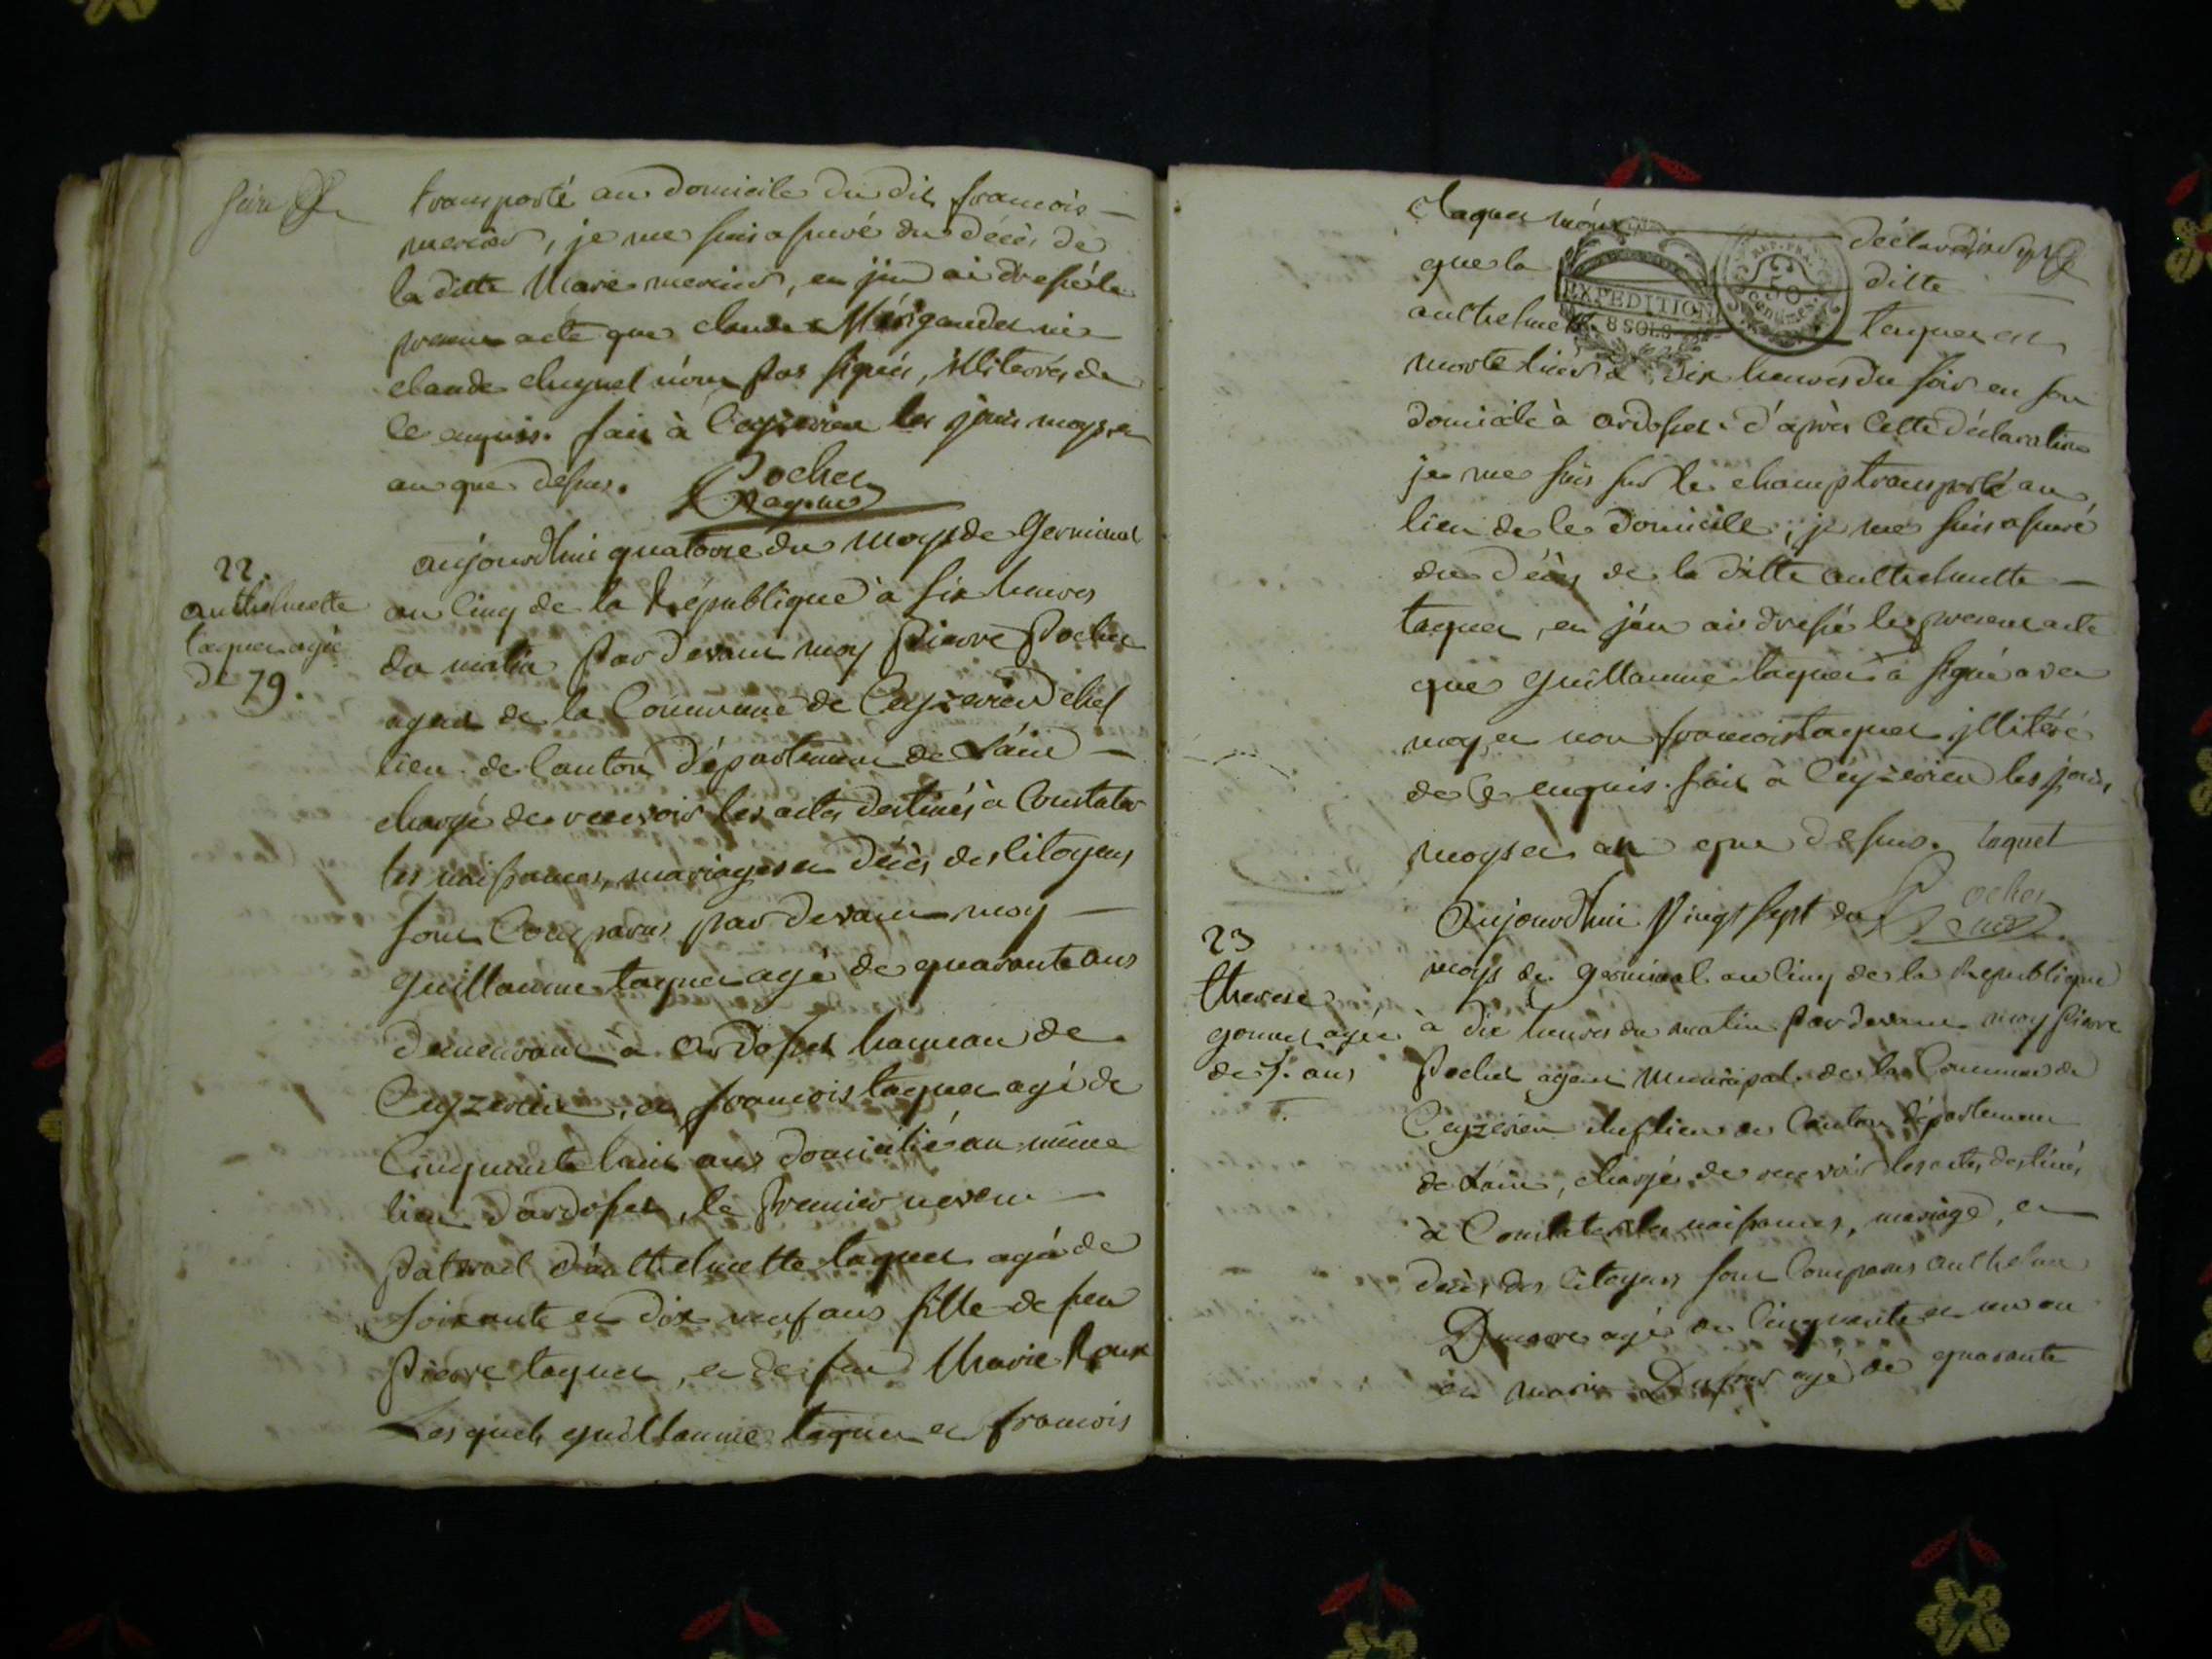 transporté au domicile du dit francois
mercier, je me suis assuré du décès de
la ditte Marie mercier, en jen ai dressé le
present acte que claude Mérigaudet ni
claude chuynet n'ont pas signés, illiterés de
ce enquis. fait à Ceyzerien les jour moys et
an que dessus. Pochet
agent
22.
anthelmette
taquet agée
de 79.
aujourdhui quatorze du moys de Germinal
an cinq de la République à six heures
du matin pardevant moy Pierre Pochet
agent de la Commune de Ceyzerien chef
lieu de Canton département de Láin
chargé de recevoir les actes destinés à Constater
les naissances, mariages et décès des citoyens
sont Comparus pardevant moy
guillaume taquet agé de quarante ans
demeurant à ardosset hameau de
Ceyzerien, et francois taquet agé de
Cinquante huit ans domicilié au même
lieu d'ardosset, le premier neveu
paternel d'anthelmette taquet agée de
soixante et dix neuf ans fille de feu
Pierre taquet, et de feu Marie Roux
Lesquels guillaume taquet et francois
taquet m'ont déclaré
que la ditte
anthelmette taquet est
EXPEDITION
8 SOLS
REP. FRA.
50
centimes
morte hier à dix heures du soir en son
domicile à ardosset. d'après cette déclaration
je me suis sur le champ transporté au
lieu de le domicile, je me suis assuré
du décès de la ditte anthelmette
taquet, en jén ai dressé le present acte
que guillaume taquet à signé avec
moy, et non francois taquet illitéré
de ce enquis. fait à Ceyzerien les jour,
moys et an que dessus. taquet
Pochet
23
therese
gonnet agée
de 7. ans
Aujourdhui Vingt sept du
moys de germinal an cinq de la Republique
à dix heures du matin pardevant moy Pierre
Pochet agent Municipal de la Commune de
Ceyzerien cheflieu de Canton département
de Láin, chargé de recevoir les actes destinés
à Constater les naissances, mariage, et
décès des Citoyens sont Comparus anthelme
agé de Cinquante et un an
et marie Dufour agé de quarante